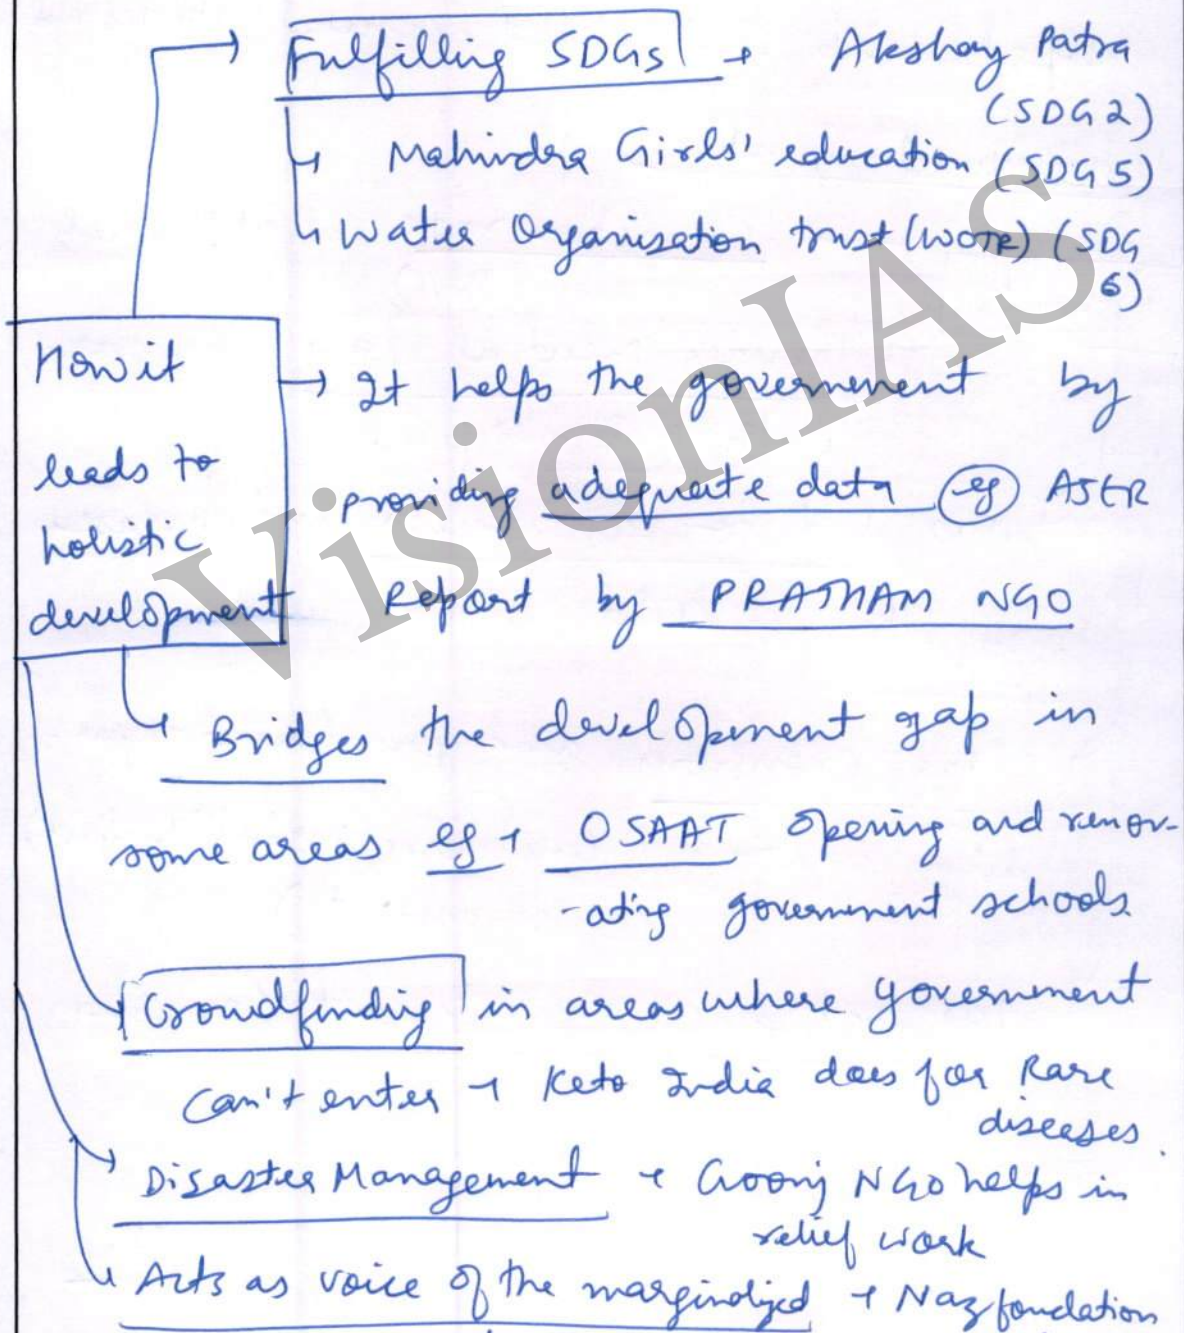 → Fulfilling SDGs → Akshay Patra
(SDG2)
↳ Mahindra Girls' education (SDG5)
↳ Water Organisation trust (WOTR) (SDG
6)
How it
leads to
holistic
development
→ It helps the government by
providing adequate data eg ASER
Report by PRATHAM NGO
↳ Bridges the development gap in
some areas eg → OSAAT opening and renov-
-ating government schools
→ Crowdfunding in areas where government
can't enter → Keto India does for Rare
diseases.
→ Disaster Management → Goonj NGO helps in
relief work
↳ Acts as voice of the marginalized → Naz foundation
VisionIAS